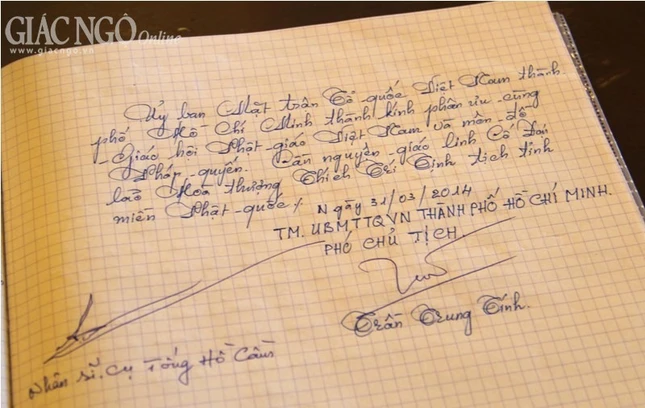 GIÁC NGỘ Online
www.giacngo.vn
Ủy ban Mặt trân Tổ-quốc Việt Nam thành
phố Hồ Chí Minh thành kính phân ưu cùng
Giáo hội Phật-giáo Việt Nam và môn-đồ
Pháp-quyến. nguyện giáo linh Cố Đại
lão Hòa thượng Thích Trí Tịnh tịch tịnh
miền Phật-quốc./.
Ngày 31/03/2014
TM. UBMTTQVN THÀNH PHỐ HỒ CHÍ MINH.
PHÓ CHỦ TỊCH.
Trần Trung Tính.
Nhân sĩ. Cụ Tống Hồ Cầm